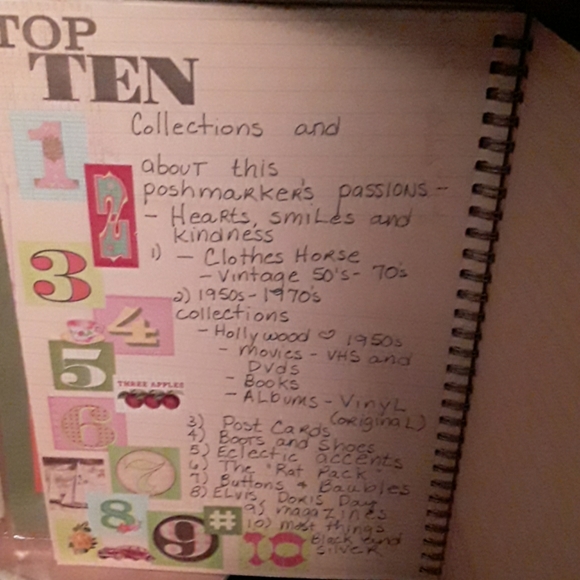 TOP
TEN
1
Collections and
about this
2
poshmarker's passions -
- Hearts, smiles and
kindness
3
1) - Clothes Horse
- Vintage 50's - 70's
2) 1950s - 1970's
collections
4
- Hollywood ♡ 1950s
- Movies - VHS and
DVDs
5
- Books
THREE APPLES
- Albums - Vinyl
(original)
6
3) Post Cards
4) Boots and Shoes
5) Eclectic accents
6) The "Rat Pack
7
7) Buttons & Baubles
8) Elvis, Doris Day
8
9) magazines
9
#
10) most things
10
Black and
silver